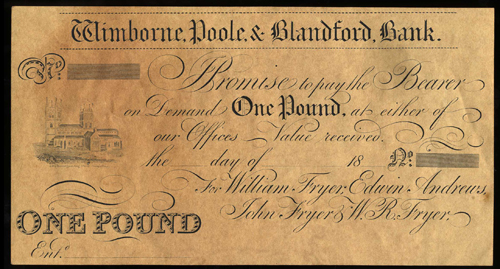 Wimborne, Poole, & Blandford, Bank.
No.
I Promise to pay the Bearer
on Demand One Pound, at either of
our Offices Value received.
the day of 18 No.
For William Fryer, Edwin Andrews,
John Fryer & W. R. Fryer.
ONE POUND
Entd.